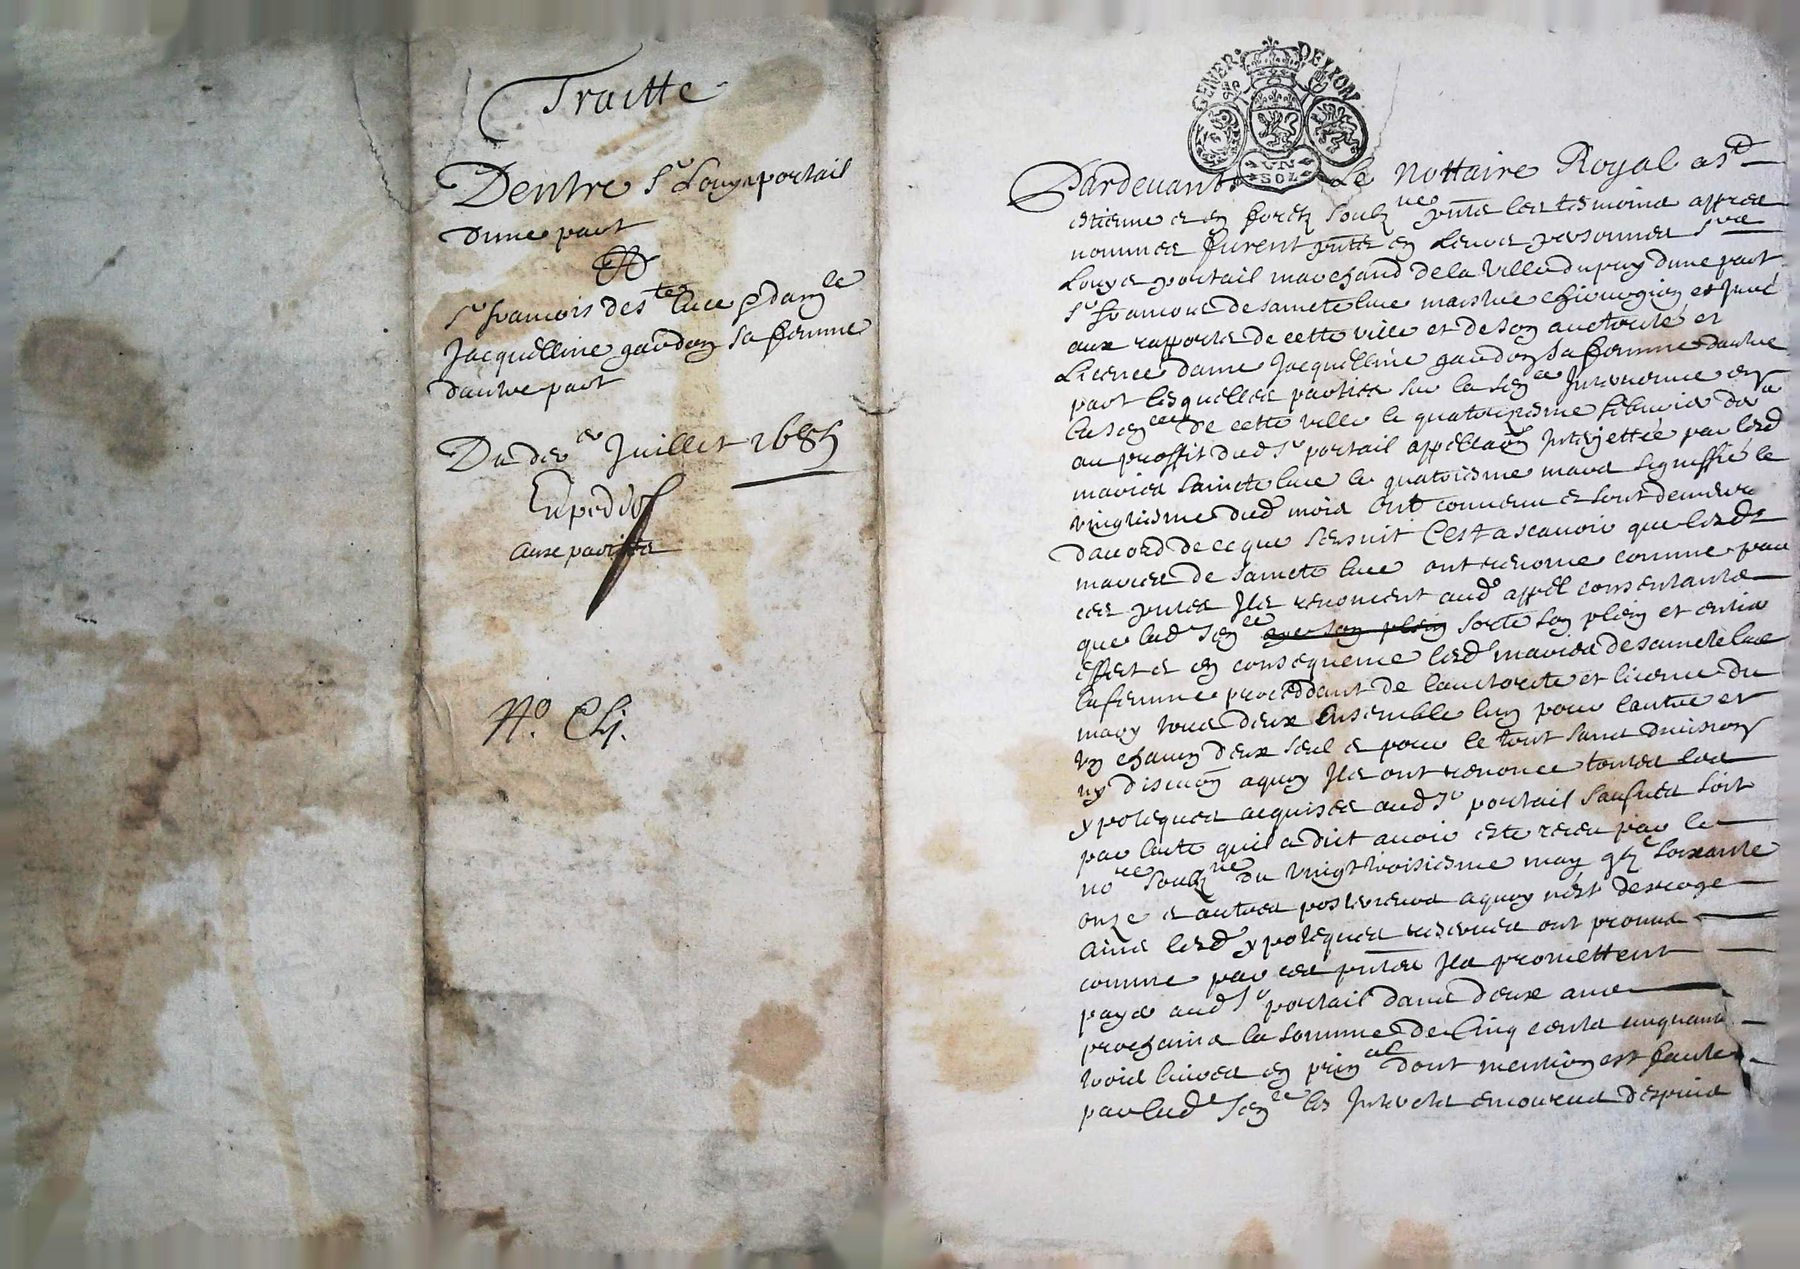 Traitte
Dentre Sr Louys portail
dune part
Et
Sr francois de Ste luce & damle
Jacquelline gaudon sa femme
dautre part
Du der er Juillet 1685
Expedié
aux parties
No. Cly.
GENER. DE LION
UN
SOL
Pardevant Le Nottaire Royal a St
estienne en forest soubzne pntz les tesmoins appres
nommes furent pntz en leurs personnes Sieur
Louys portail marchand de la ville du puy dune part
Sr francois de saincte luce maistre chirurgien et juré
aux rapportz de cette ville et de son auctorité et
licence dame Jacquelline gaudon sa femme dautre
part lesquelles parties sur la senze Intervenue en
la senes de cette ville le quatorziesme febvrier
au proffit dud Sr portail appellaon Interjettée par lesd
mariés saincte luce le quatorziesme mars signiffié le
vingtiesme dud mois ont convenu et sont demeuré
daccord de ce que sensuit Cest a scavoir que lesdts
mariés de saincte luce ont renoncé comme par
ces pntes Ils renoncent aud appel consentants
que lad senze sorte son plein et entier
effect et en consequence lesd mariés de saincte luce
la femme proceddant de lauctorité et licence du
mary tous deux ensemble lun pour lautre et
un chacun deux seul et pour le tout sans division
ny discuon a quoy Ils ont renoncé toutes les
ypoteques acquises aud Sr portail sauves soit
par lacte quil a dict avoir esté receu par le
nore soubzne du vingt troisiesme may gbz soixante
onze et autres posterieurs a quoy nest desrogé
ains lesd ypoteques reservées ont promis
comme par ces pntes Ils promettent
payer aud Sr portail dans deux ans
prochains la somme de Cinq cents cinquante
trois livres en prinal dont mention est faicte
par lad senze les Interetz encourus despuis